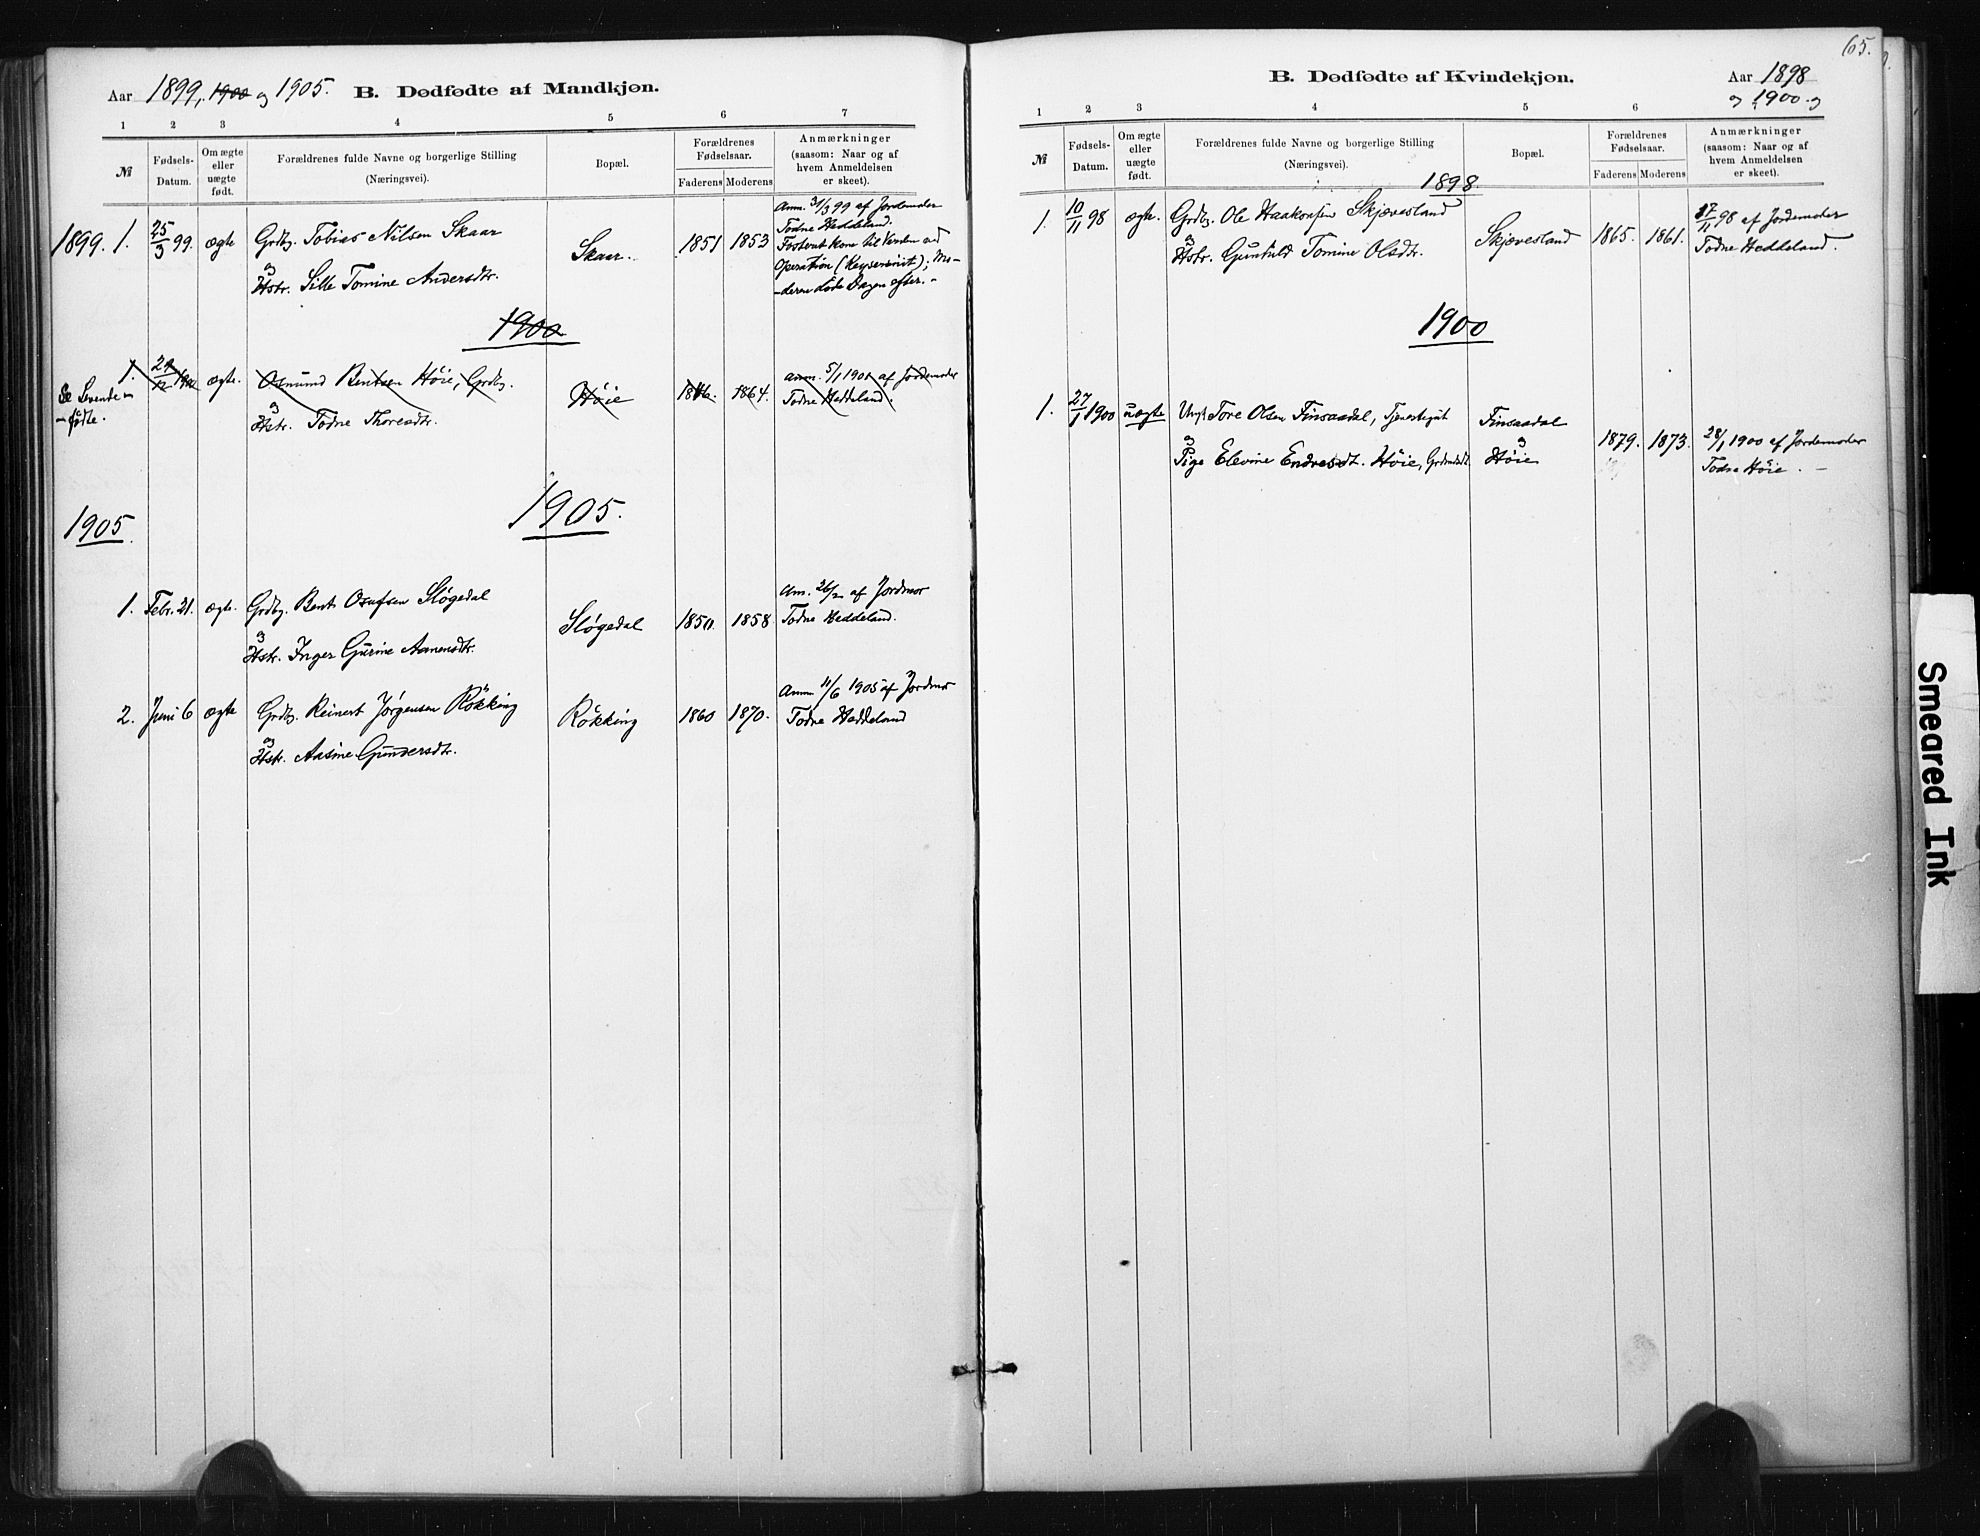 Aar 1899, 1900 og 1905. B. Dødfødte af Mandkjøn.
1 2 3 4 5 6 7
№
Fødsels-Datum.
Om ægte eller uægte født.
Forældrenes fulde Navne og borgerlige Stilling (Næringsvei).
Bopæl.
Forældrenes Fødselsaar.
Faderens Moderens
Anmærkninger (saasom: Naar og af hvem Anmeldelsen er skeet).
1899. 1. 25/3 99. ægte Grdbg. Tobias Nilsen Skaar
og
Hstr. Sille Tomine Andersdtr.
Skaar.
1851 1853
Anm. 31/3 99 af Jordemoder
Todne Heddeland.
Fosteret kom til Verden ved
Operation (Keysersnit); Mo-
-deren døde Dagen efter. -
1900
Se Levende
-fødte.
1. ægte. Osmund Bentsen Höie, Grdbg.
og
Hstr. Todne Thoresdtr.
Höie
1864.
anm. 5/1 1901 af Jordemoder
Todne Heddeland.
1905
1905.
1. Febr. 21. ægte. Grdbg. Bent Osufsen Sløgedal
og
Hstr. Inger Gurine Aanensdtr.
Sløgedal
1850. 1858
Anm. 26/2 af Jordmor
Todne Heddeland.
2. Juni 6 ægte Grdbg. Reinert Jørgensen Rökking
og
Hstr. Aasine Gundersdtr.
Rökking
1860 1870.
Anm. 11/6 1905 af Jordmor
Todne Heddeland
65.
B. Dødfødte af Kvindekjøn. Aar 1898
og 1900. og
1 2 3 4 5 6
№
Fødsels-Datum.
Om ægte eller uægte født.
Forældrenes fulde Navne og borgerlige Stilling (Næringsvei).
Bopæl.
Forældrenes Fødselsaar.
Faderens Moderens
Anmærkninger (saasom: Naar og af hvem Anmeldelsen er skeet).
1898.
1. 10/11 98 ægte. Grdbg. Ole Haakonsen Skjævesland
og
Hstr. Gunhild Tomine Olsdtr.
Skjævesland
1865. 1861.
17/11 98 af Jordemoder
Todne Heddeland.
1900
1. 27/1 1900 uægte Ungk. Tore Olsen Finsaadal, Tjenestegut
og
Pige Elevine Endresdt. Höie,
Finsaadal
og
Höie
1879. 1873.
28/1 1900 af Jordemoder
Todne Höie. -
Smeared Ink